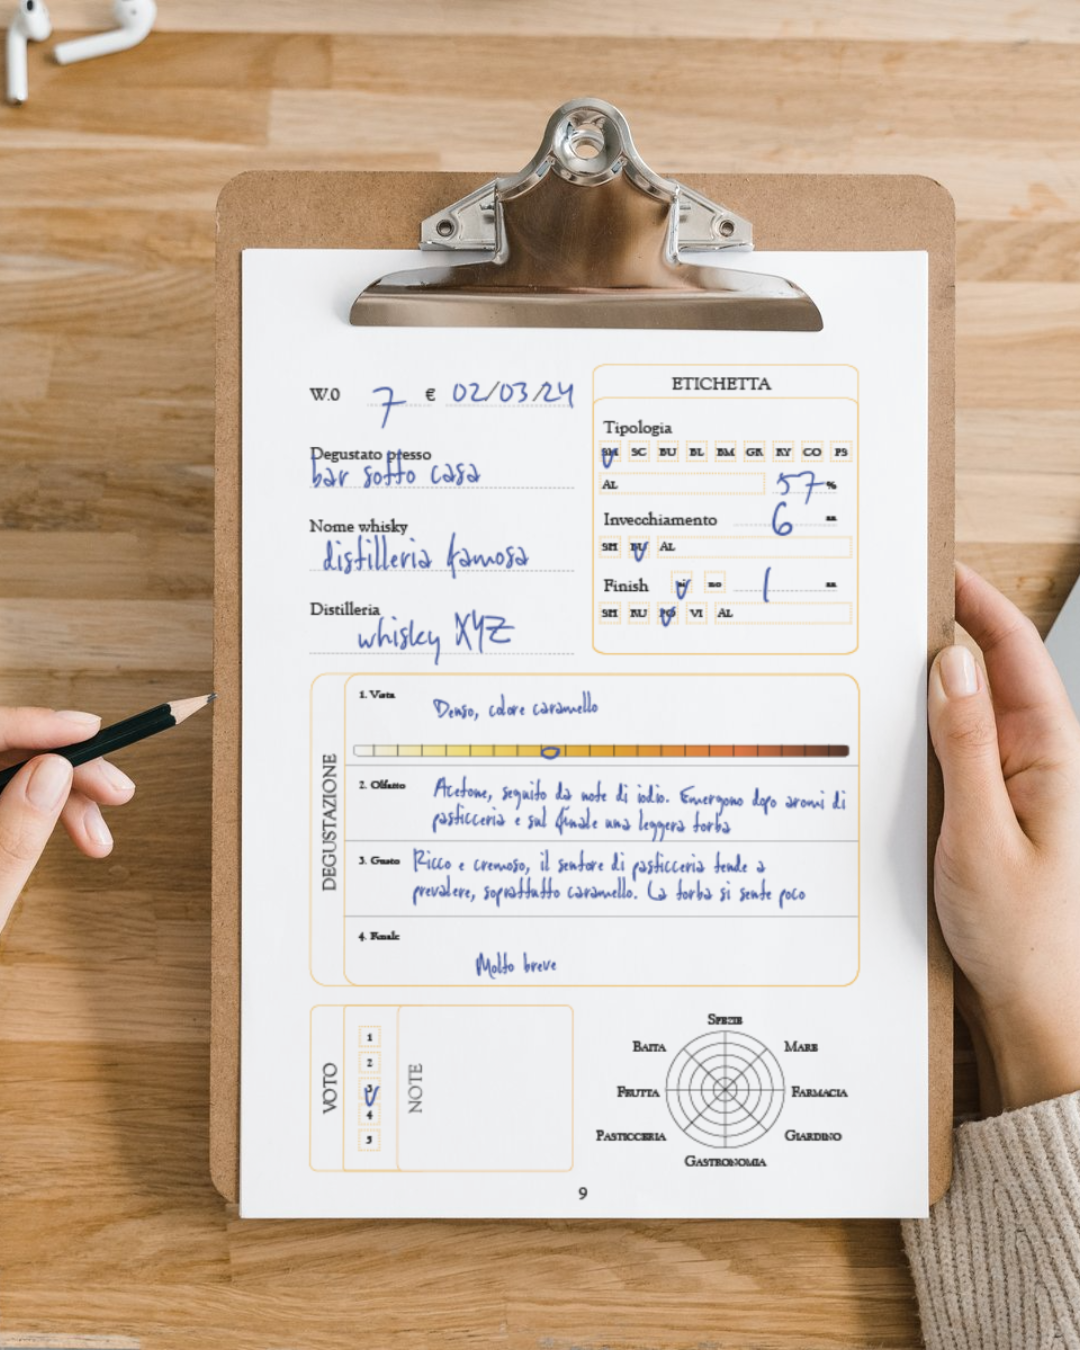 W.0 7 € 02/03/24
Degustato presso
bar sotto casa
Nome whisky
distilleria famosa
Distilleria
whisky XYZ
ETICHETTA
Tipologia
SM SC BU BL BM GR RY CO PS
AL 57 %
Invecchiamento 6
SH BU AL
Finish si no 1
SH RU PO VI AL
DEGUSTAZIONE
1. Vista Denso, colore caramello
2. Olfatto Acetone, seguito da note di iodio. Emergono dopo aromi di
pasticceria e sul finale una leggera torba
3. Gusto Ricco e cremoso, il sentore di pasticceria tende a
prevalere, soprattutto caramello. La torba si sente poco
4. Finale
Molto breve
VOTO
1
2
3
4
5
NOTE
SPEZIE
BAITA
MARE
FRUTTA
FARMACIA
PASTICCERIA
GIARDINO
GASTRONOMIA
9